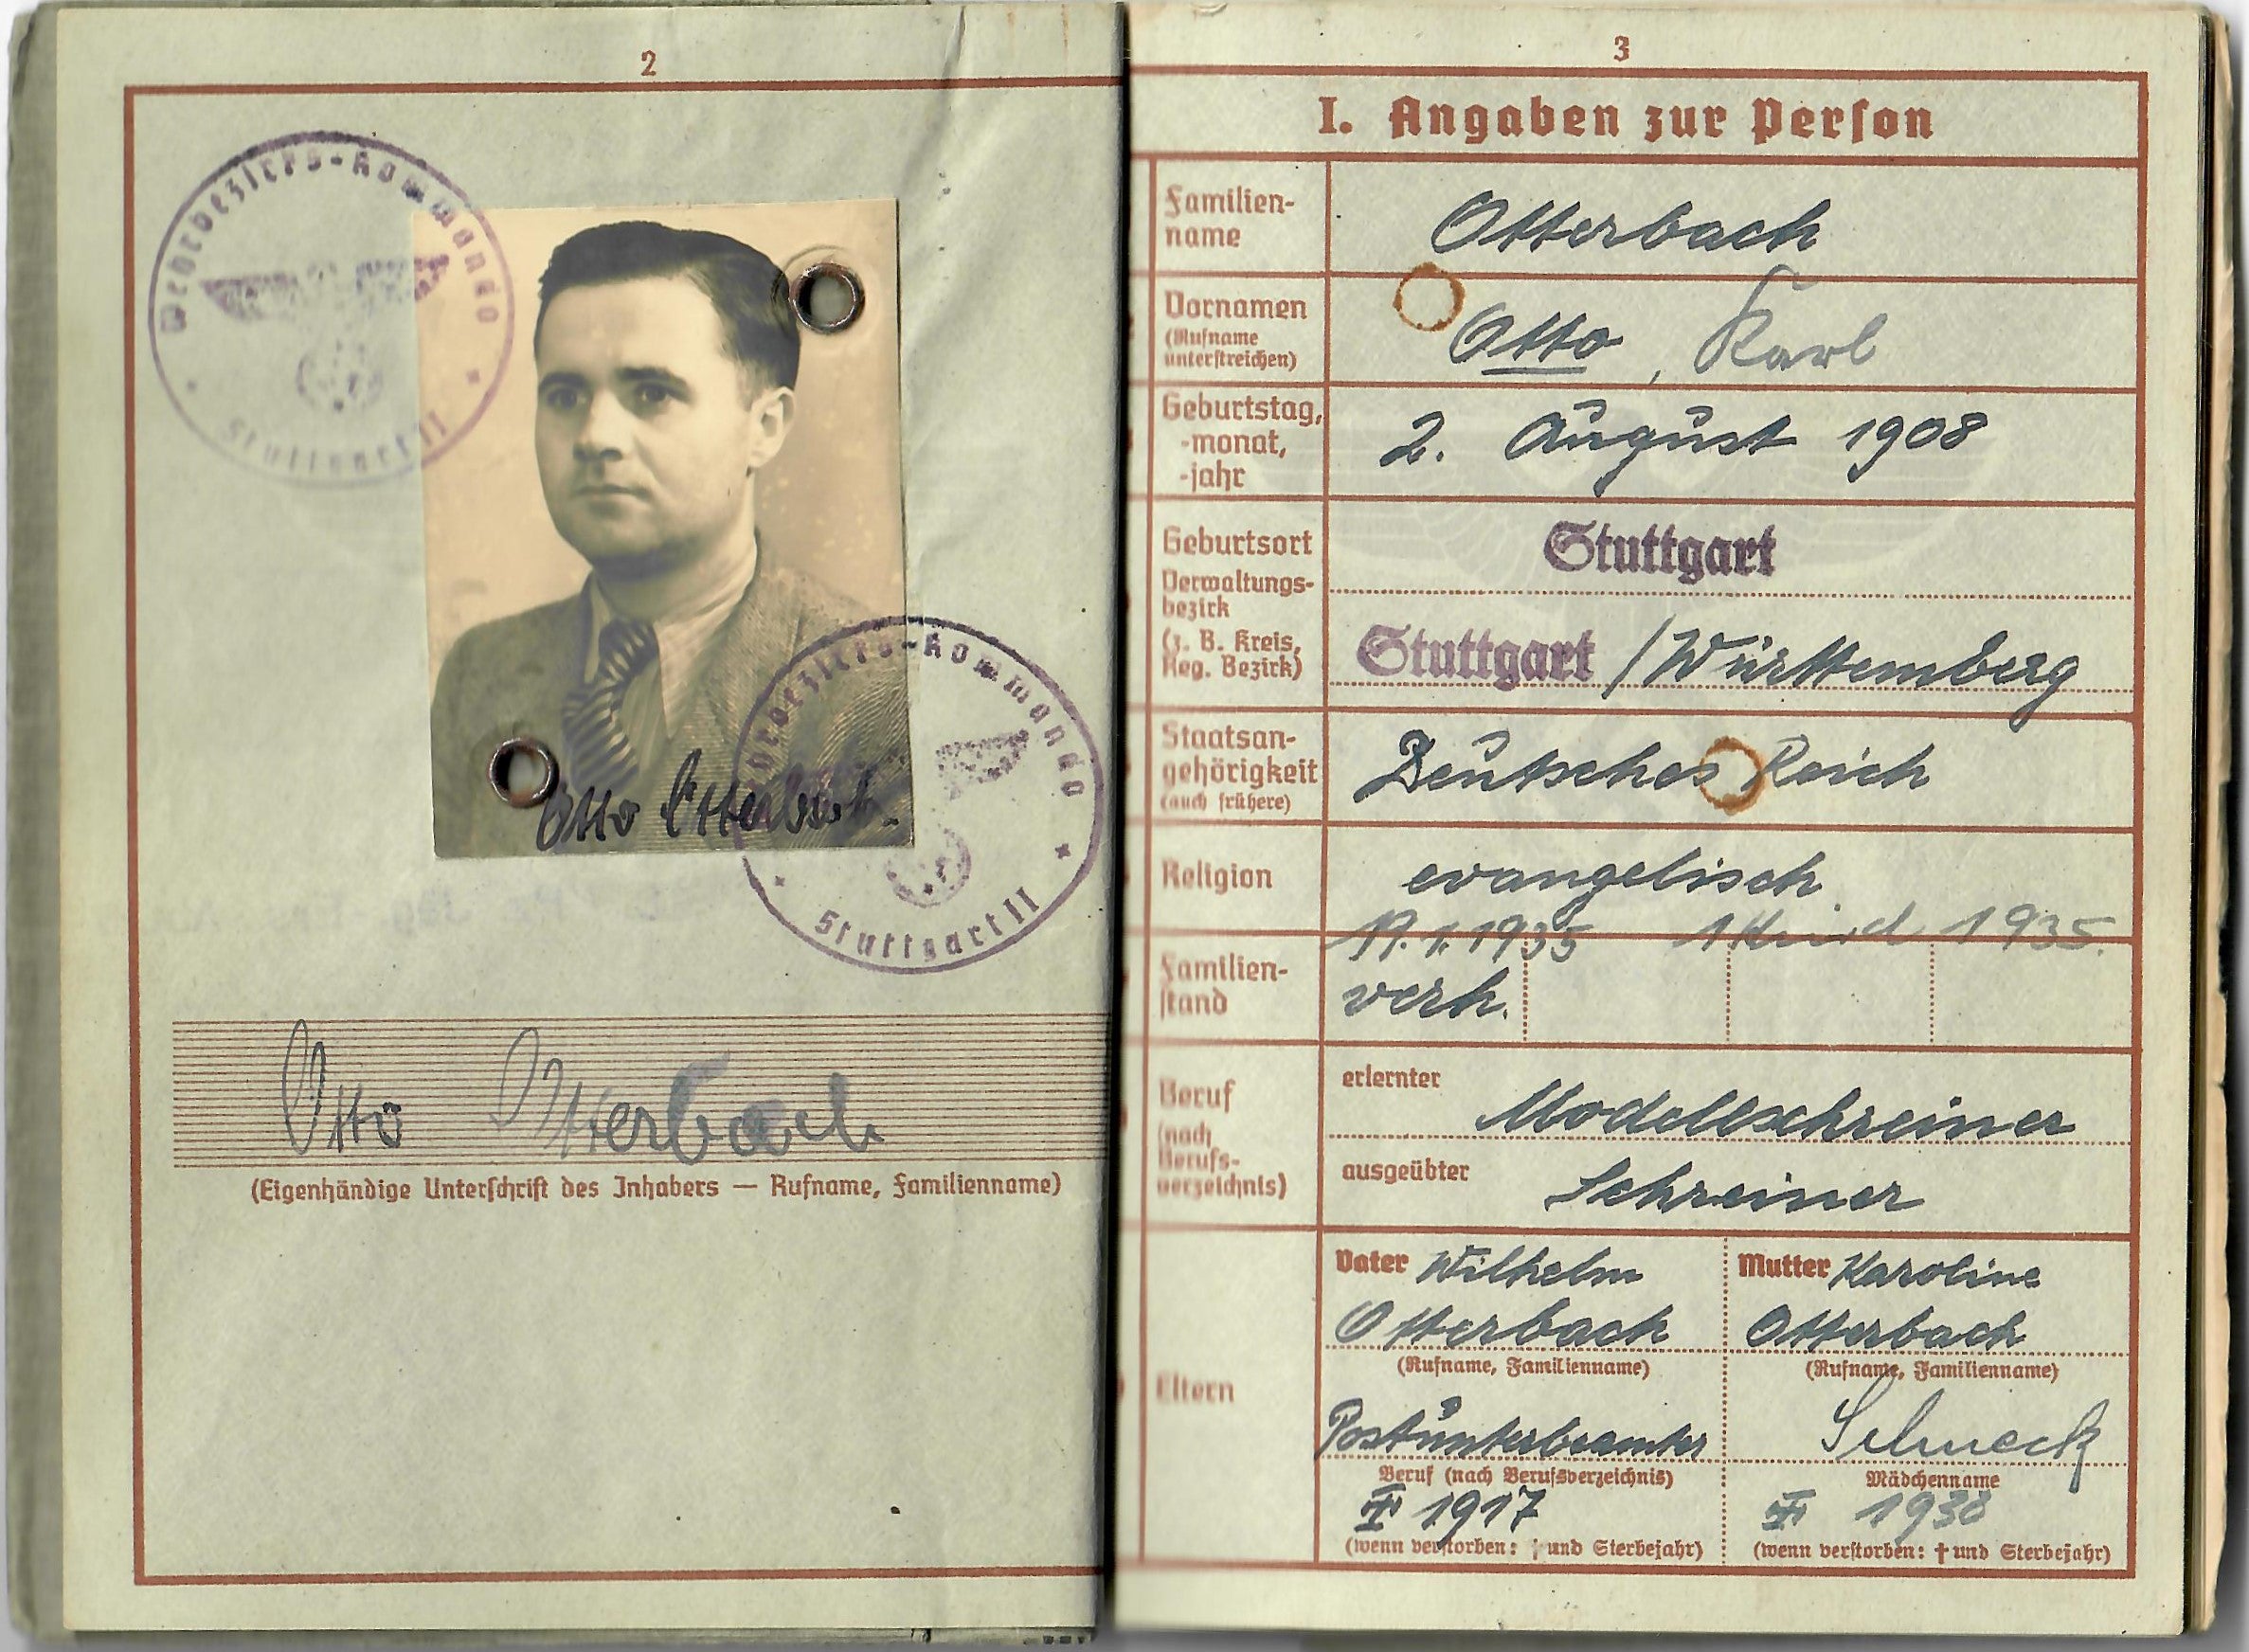 2
Wehrbezirks-Kommando
Stuttgart II
Otto Otterbach
Wehrbezirks-Kommando
Stuttgart II
Otto Otterbach
(Eigenhändige Unterschrift des Inhabers — Rufname, Familienname)
3
I. Angaben zur Person
Familien-
name
Otterbach
Vornamen
(Rufname
unterstreichen)
Otto, Karl
Geburtstag,
-monat,
-jahr
2. August 1908
Geburtsort
Stuttgart
Verwaltungs-
bezirk
(z. B. Kreis,
Reg. Bezirk)
Stuttgart / Württemberg
Staatsan-
gehörigkeit
(auch frühere)
Deutsches Reich
Religion
evangelisch
19.1.1935 1 Kind 1935.
Familien-
stand
verh.
Beruf
(nach
Berufs-
verzeichnis)
erlernter
Modellschreiner
ausgeübter
Schreiner
Eltern
Vater Wilhelm
Otterbach
(Rufname, Familienname)
Postunterbeamter
Beruf (nach Berufsverzeichnis)
† 1917
(wenn verstorben: † und Sterbejahr)
Mutter Karoline
Otterbach
(Rufname, Familienname)
Schneck
Mädchenname
† 1938
(wenn verstorben: † und Sterbejahr)